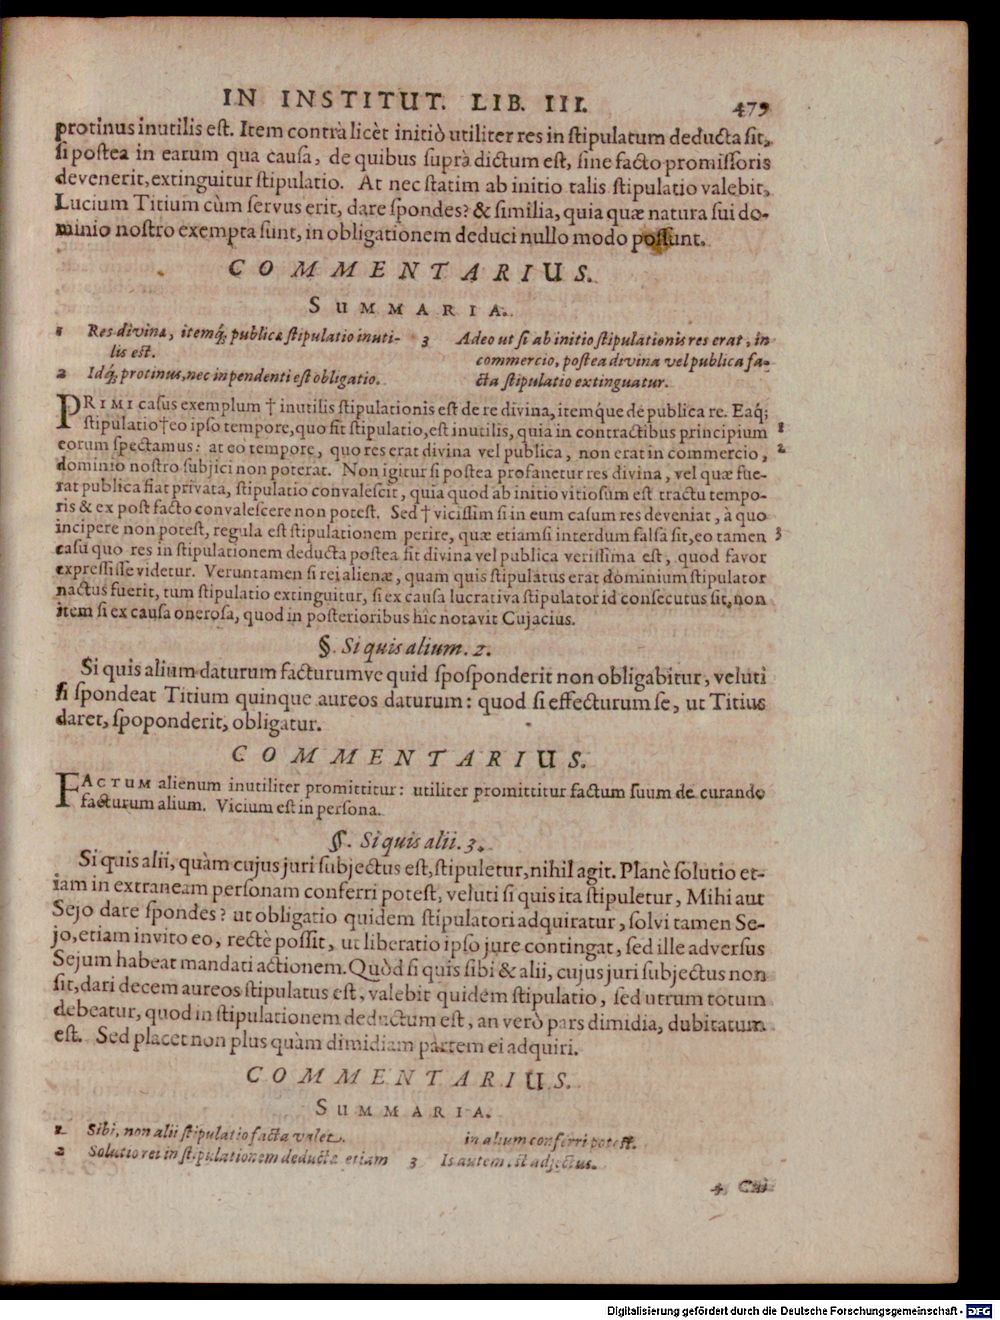 IN INSTITUT. LIB. III. 479
protinus inutilis est. Item contrà licèt initiò utiliter res in stipulatum deducta sit,
si postea in earum qua causa, de quibus suprà dictum est, sine facto promissoris
devenerit, extinguitur stipulatio. At nec statim ab initio talis stipulatio valebit,
Lucium Titium cùm servus erit, dare spondes? & similia, quia quæ natura sui do-
minio nostro exempta sunt, in obligationem deduci nullo modo possunt.
COMMENTARIUS.
SUMMARIA.
1 Res divina, itemq́; publica stipulatio inuti-
lis est.
2 Idq́; protinus, nec in pendenti est obligatio.
3 Adeo ut si ab initio stipulationis res erat, in
commercio, postea divina vel publica fa-
cta stipulatio extinguatur.
PRIMI casus exemplum † inutilis stipulationis est de re divina, itemque de publica re. Eaq́;
stipulatio † eo ipso tempore, quo fit stipulatio, est inutilis, quia in contractibus principium 1
eorum spectamus: at eo tempore, quo res erat divina vel publica, non erat in commercio, 2
dominio nostro subjici non poterat. Non igitur si postea profanetur res divina, vel quæ fue-
rat publica fiat privata, stipulatio convalescit, quia quod ab initio vitiosum est tractu tempo-
ris & ex post facto convalescere non potest. Sed † vicissim si in eum casum res deveniat, à quo
incipere non potest, regula est stipulationem perire, quæ etiamsi interdum falsa sit, eo tamen 3
casu quo res in stipulationem deducta postea fit divina vel publica verissima est, quod favor
expressisse videtur. Veruntamen si rei alienæ, quam quis stipulatus erat dominium stipulator
nactus fuerit, tum stipulatio extinguitur, si ex causa lucrativa stipulator id consecutus sit, non
item si ex causa onerosa, quod in posterioribus hic notavit Cujacius.
§. Si quis alium. 2.
Si quis alium daturum facturumve quid sposponderit non obligabitur, veluti
si spondeat Titium quinque aureos daturum: quod si effecturum se, ut Titius
daret, spoponderit, obligatur.
COMMENTARIUS.
FACTUM alienum inutiliter promittitur: utiliter promittitur factum suum de curando
facturum alium. Vicium est in persona.
§. Si quis alii. 3.
Si quis alii, quàm cujus juri subjectus est, stipuletur, nihil agit. Planè solutio et-
iam in extraneam personam conferri potest, veluti si quis ita stipuletur, Mihi aut
Sejo dare spondes? ut obligatio quidem stipulatori adquiratur, solvi tamen Se-
jo, etiam invito eo, rectè possit, ut liberatio ipso jure contingat, sed ille adversus
Sejum habeat mandati actionem. Quòd si quis sibi & alii, cujus juri subjectus non
sit, dari decem aureos stipulatus est, valebit quidem stipulatio, sed utrum totum
debeatur, quod in stipulationem deductum est, an verò pars dimidia, dubitatum
est. Sed placet non plus quàm dimidiam partem ei adquiri.
COMMENTARIUS.
SUMMARIA.
1 Sibi, non alii stipulatio facta valet.
2 Solutio rei in stipulationem deducta etiam
in alium conferri potest.
3 Is autem est adjectus.
4 Cui
Digitalisierung gefördert durch die Deutsche Forschungsgemeinschaft - DFG